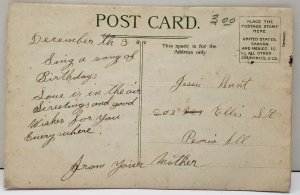 POST CARD.
3.00
PLACE THE
POSTAGE STAMP
HERE
UNITED STATES,
CANADA
AND MEXICO 1C.
ALL OTHER
COUNTRIES, 2 CS.
This space is for the
Address only
December 3
Sing a song of
Birthdays
Love is in the air
Greetings and good
Wishes for you
Every where.
From your Mother
Jessie Hunt
203 Ellis St
Peoria Ill